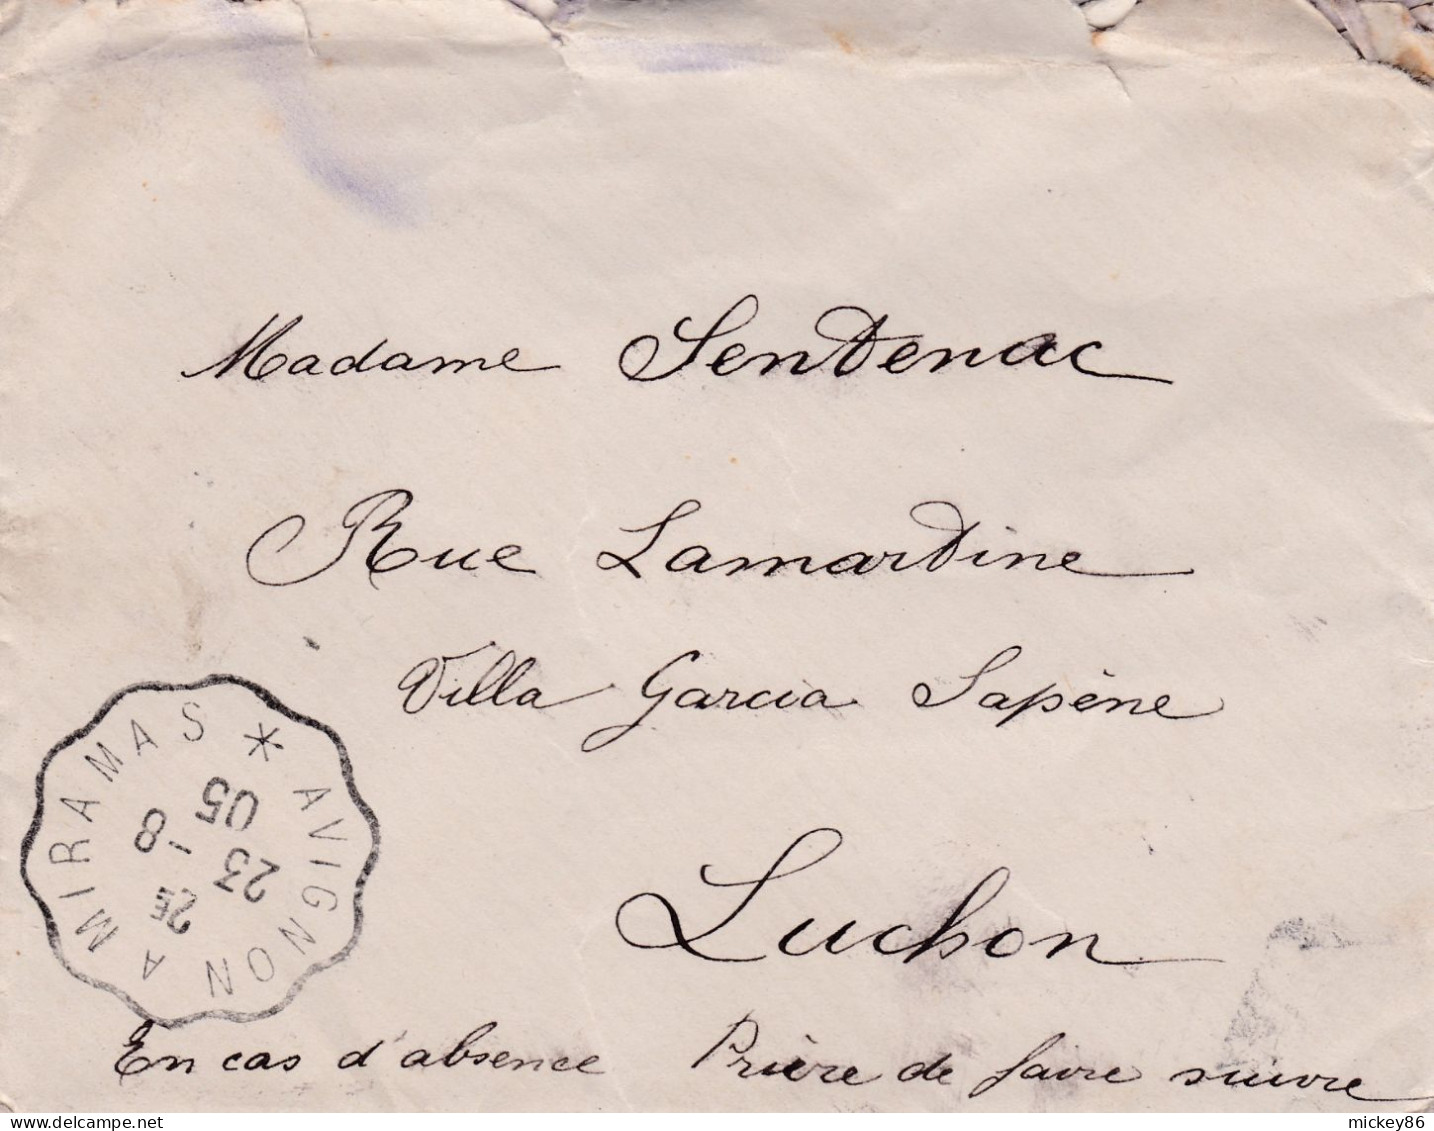 Madame Sentenac
Rue Lamartine
Villa Garcia Sapène
Luchon
AVIGNON A MIRAMAS *
2E
23 -8
05
En cas d'absence Prière de faire suivre
mickey86